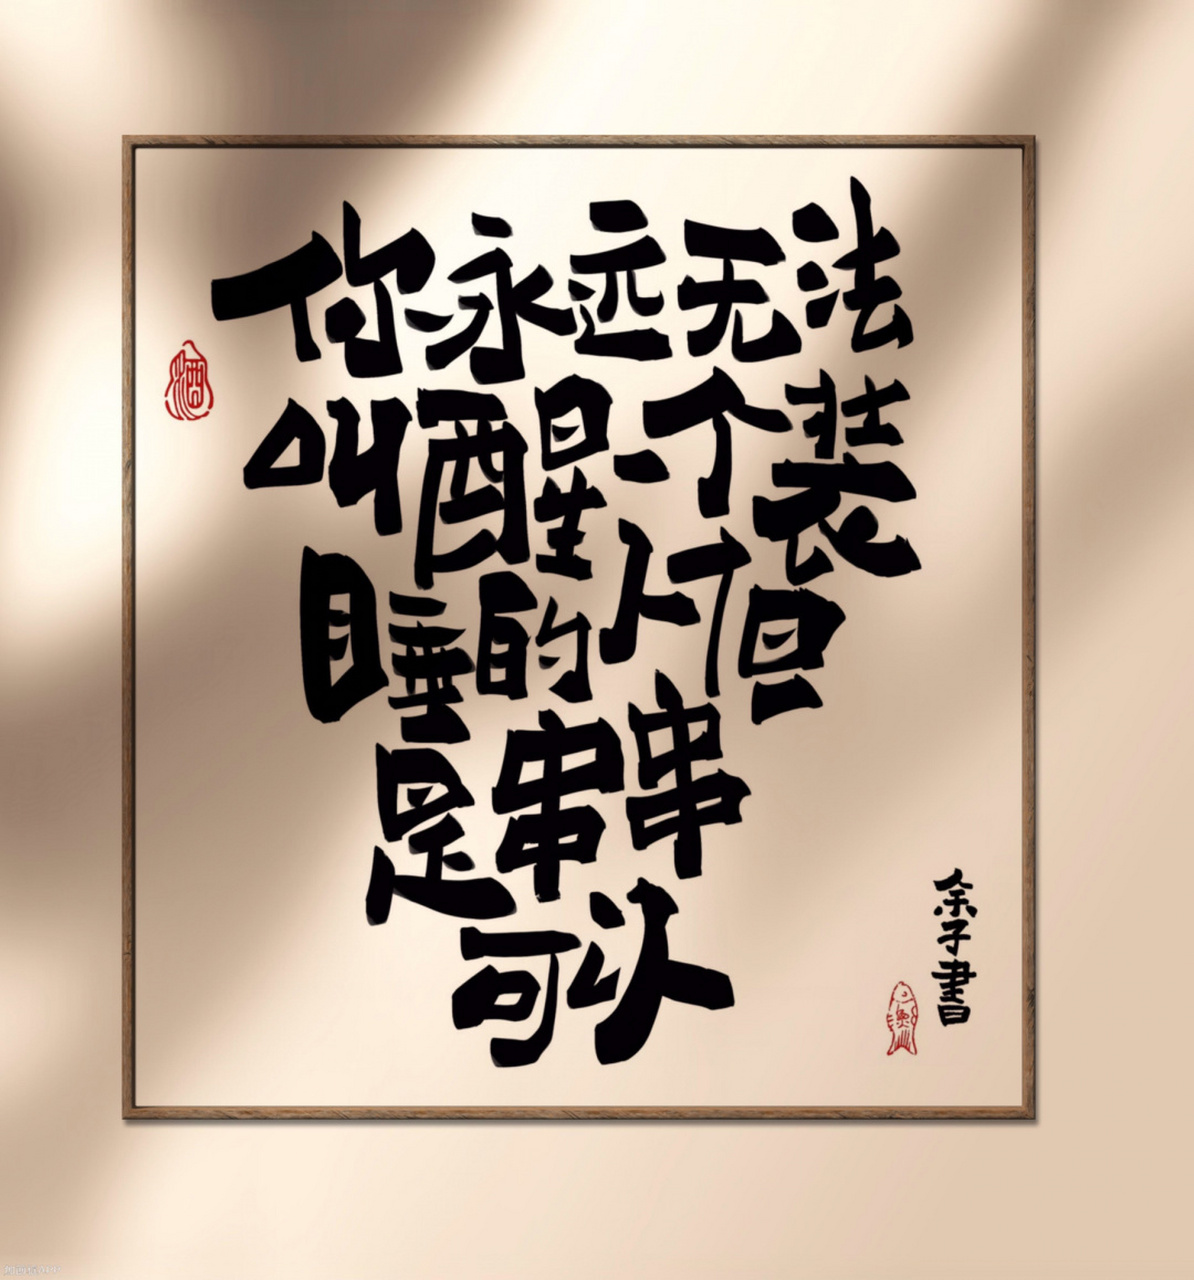 你永远无法
叫醒一个装
睡的人但
是串串
可以
余子書
酒